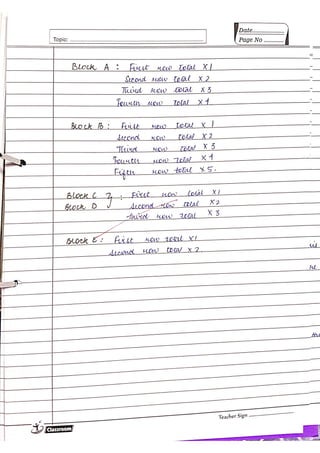 Topic:
Date
Page No
Block A : First row total X 1
Second row total X 2
Third row total X 3
Fourth row total X 4.
Block B : First row total X 1
Second row total X 2
Third row total X 3
Fourth row Total X 4
Fifth row total X 5.
Block C } : First row total X 1
Block D Second row total X 2
Third row total X 3
Block E : First row total X 1
Second row total X 2.
Teacher Sign
Classroom